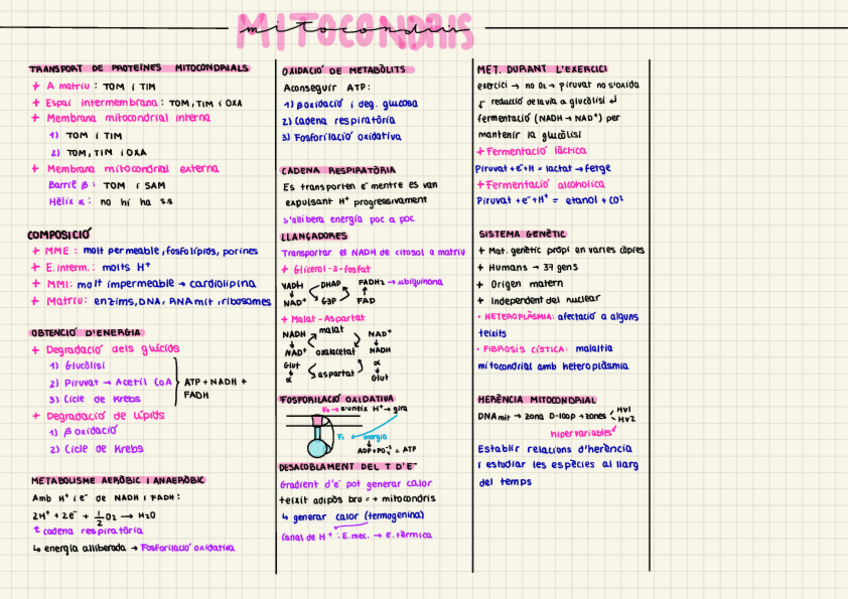 MITOCONDRIS
mitocondris
TRANSPORT DE PROTEÏNES MITOCONDRIALS
+ A matriu: TOM i TIM
+ Espai intermembrana: TOM, TIM i OXA
+ Membrana mitocondrial interna
1) TOM i TIM
2) TOM, TIM i OXA
+ Membrana mitocondrial externa
Barril β: TOM i SAM
Hèlix α: no hi ha s.s
COMPOSICIÓ
+ MME: molt permeable, fosfolípids, porines
+ E. interm.: molts H⁺
+ MMI: molt impermeable → cardiolipina
+ Matriu: enzims, DNA, RNAmit, ribosomes
OBTENCIÓ D'ENERGIA
+ Degradació dels glúcids
1) Glucòlisi
2) Piruvat → Acetil CoA
3) Cicle de Krebs
ATP + NADH +
FADH
+ Degradació de lípids
1) β oxidació
2) Cicle de Krebs
METABOLISME AERÒBIC I ANAERÒBIC
Amb H⁺ i e⁻ de NADH i FADH:
2H⁺ + 2e⁻ + 1/2 O₂ → H₂O
↑ cadena respiratòria
↳ energia alliberada → Fosforilació oxidativa
OXIDACIÓ DE METABÒLITS
Aconseguir ATP:
1) βoxidació i deg. glucosa
2) Cadena respiratòria
3) Fosforilació oxidativa
CADENA RESPIRATÒRIA
Es transporten e⁻ mentre es van
expulsant H⁺ progressivament
s'allibera energia poc a poc
LLANÇADORES
Transportar el NADH de citosol a matriu
+ Glicerol-3-fosfat
NADH DHAP FADH₂ → ubiquinona
NAD⁺ G3P FAD
+ Malat-Aspartat
NADH malat NAD⁺
NAD⁺ oxalacetat NADH
Glut α
α aspartat Glut
FOSFORILACIÓ OXIDATIVA
F₀ → s'uneix H⁺ → gira
F₁ energia
ADP + PO₄⁻³ = ATP
DESACOBLAMENT DEL T D'E⁻
Gradient d'e⁻ pot generar calor
teixit adipós bru = + mitocondris
↳ generar calor (termogenina)
Canal de H⁺: E. mec. → E. tèrmica
MET. DURANT L'EXERCICI
exercici → no O₂ → piruvat no s'oxida
reducció de la via a glucòlisi
fermentació (NADH → NAD⁺) per
mantenir la glucòlisi
+ Fermentació làctica
Piruvat + e⁻ + H = lactat → fetge
+ Fermentació alcohòlica
Piruvat + e⁻ + H⁺ = etanol + CO²
SISTEMA GENÈTIC
+ Mat. genètic propi en varies còpies
+ Humans → 37 gens
+ Origen matern
+ Independent del nuclear
• HETEROPLÀSMIA: afectació a alguns
teixits
• FIBROSIS CÍSTICA: malaltia
mitocondrial amb heteroplàsmia
HERÈNCIA MITOCONDRIAL
DNAmit → zona D-loop → zones HV1
HV2
hipervariables
Establir relacions d'herència
i estudiar les espècies al llarg
del temps